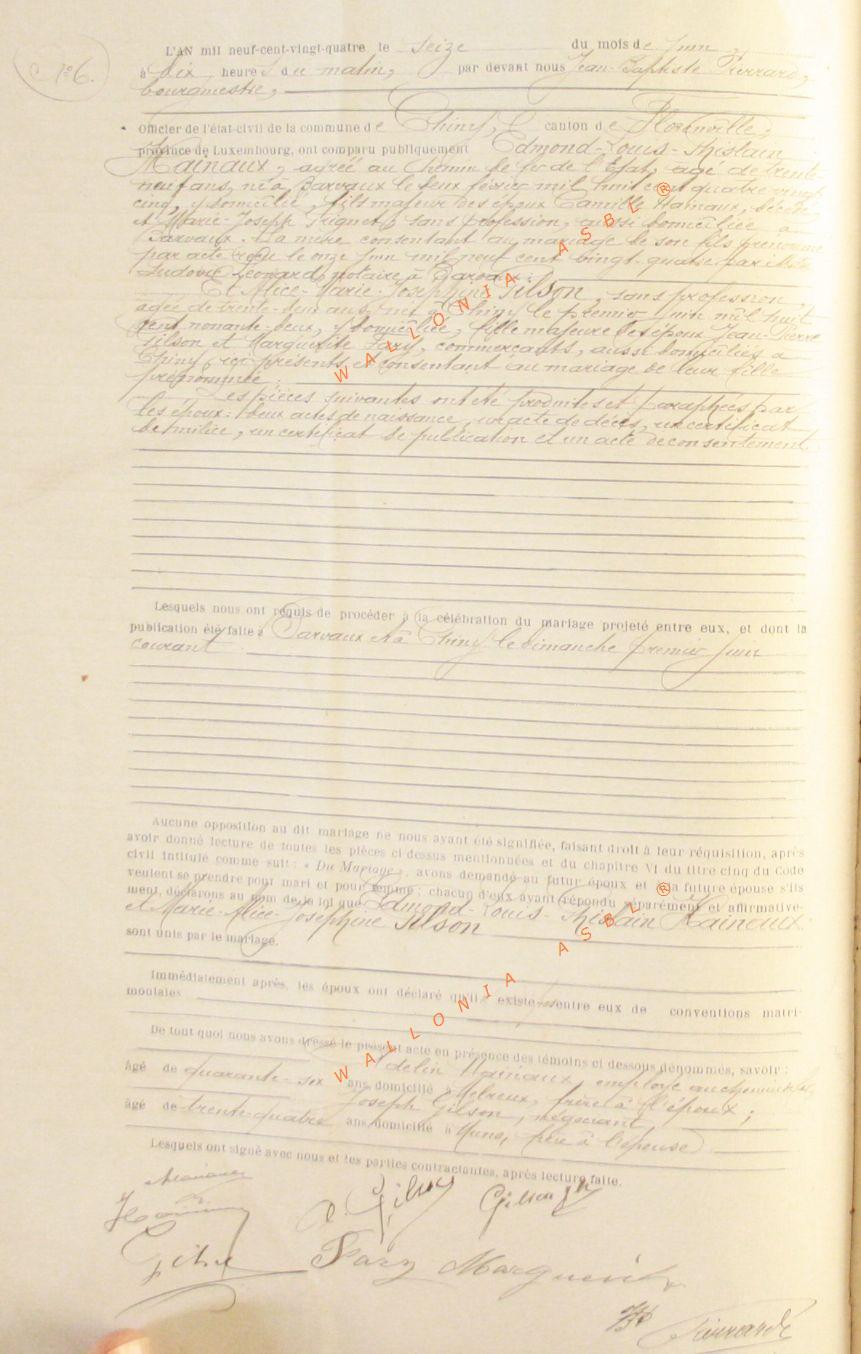 N° 6.
L'AN mil neuf-cent-vingt-quatre le seize du mois de Juin,
à dix heures du matin, par devant nous Jean-Baptiste Pierrard,
bourgmestre,
Officier de l'état-civil de la commune de Chiny, canton de Florenville,
province de Luxembourg, ont comparu publiquement Edmond-Louis-Ghislain
Hainaux, agréé au chemin de fer de l'Etat, âgé de trente-
neuf ans, né à Barvaux le deux février mil huit cent quatre vingt
cinq, y domicilié, fils majeur des époux Camille Hainaux, décédé
et Marie-Joseph sans profession, aussi domiciliée à
Barvaux. La mère consentant au mariage de son fils prénommé
par acte reçu le onze Juin mil neuf cent vingt-quatre par
Ludovic Léonard, notaire à
Et Alice-Marie-Joséphine Gilson, sans profession,
âgée de trente-deux ans, née à Chiny le premier juin mil huit
cent nonante-deux, y domiciliée, fille majeure des époux Jean-Pierre
Gilson et Marguerite Fary, commerçants, aussi domiciliés à
Chiny, ici présents et consentant au mariage de leur fille
prénommée.
Les pièces suivantes ont été produites et paraphées par
les époux: deux actes de naissance, un acte de décès, un certificat
de milice, un certificat de publication et un acte de consentement
Lesquels nous ont requis de procéder à la célébration du mariage projeté entre eux, et dont la
publication été faite à Barvaux et à Chiny le dimanche premier Juin
courant.
Aucune opposition au dit mariage ne nous ayant été signifiée, faisant droit à leur réquisition, après
avoir donné lecture de toutes les pièces ci dessus mentionnées et du chapitre VI du titre cinq du Code
civil intitulé comme suit : « Du Mariage », avons demandé au futur époux et à la future épouse s'ils
veulent se prendre pour mari et pour femme ; chacun d'eux ayant répondu séparément et affirmative-
ment, déclarons au nom de la loi que Edmond-Louis-Ghislain Hainaux
et Marie-Alice-Joséphine Gilson
sont unis par le mariage.
Immédiatement après, les époux ont déclaré qu'il existe entre eux de conventions matri-
moniales
De tout quoi nous avons dressé le présent acte en présence des témoins ci dessous dénommés, savoir :
Adelin Hainaux, employé au chemin de fer,
âgé de quarante-six ans, domicilié à Melreux, frère à l'époux ;
Joseph Gilson, négociant,
âgé de trente-quatre ans, domicilié à Muno, frère à l'épouse
Lesquels ont signé avec nous et les parties contractantes, après lecture faite.
A. Gilson Gilson
Fary Marguerite
Pierrard
WALLONIA ASBL ®
WALLONIA ASBL ®